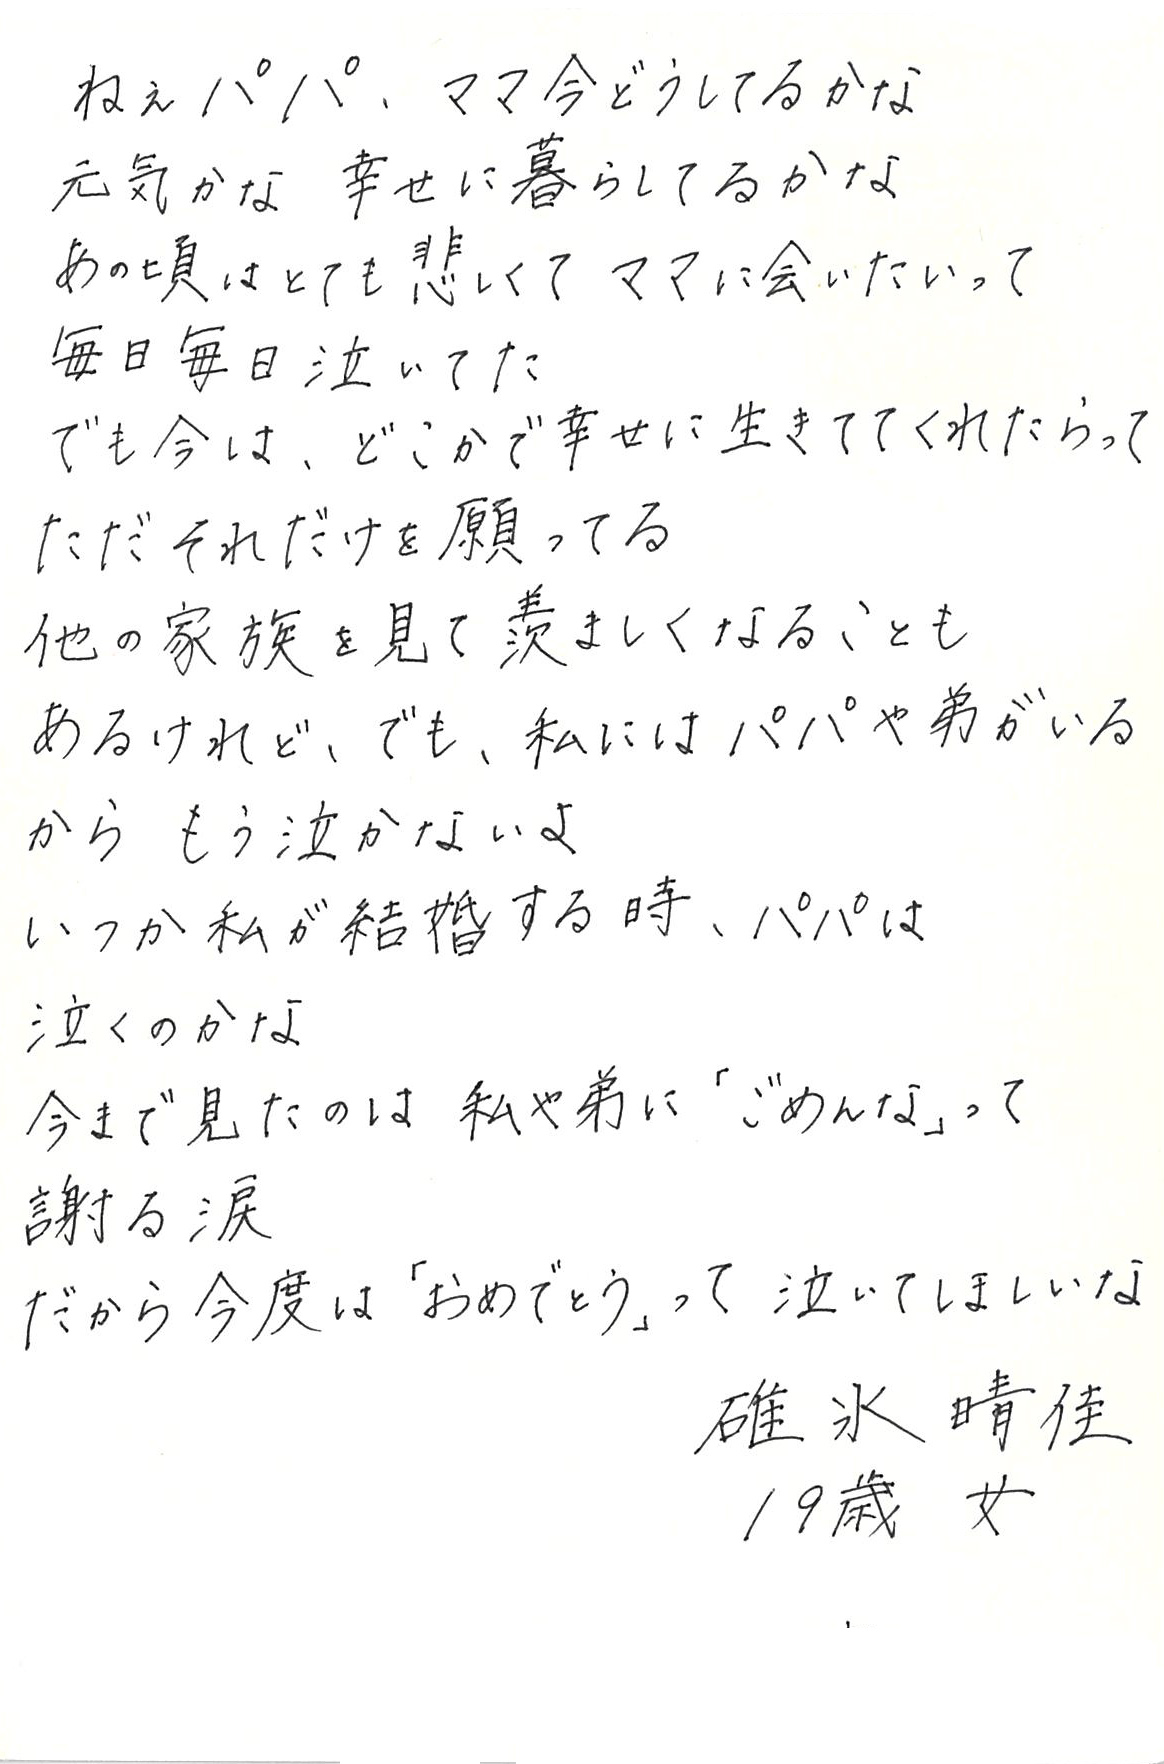 ねぇパパ、ママ今どうしてるかな
元気かな 幸せに暮らしてるかな
あの頃はとても悲しくて ママに会いたいって
毎日毎日泣いてた
でも今は、どこかで幸せに生きててくれたらって
ただそれだけを願ってる
他の家族を見て羨ましくなることも
あるけれど、でも、私にはパパや弟がいる
から もう泣かないよ
いつか私が結婚する時、パパは
泣くのかな
今まで見たのは 私や弟に「ごめんな」って
謝る涙
だから今度は「おめでとう」って 泣いてほしいな
碓氷晴佳
19歳 女